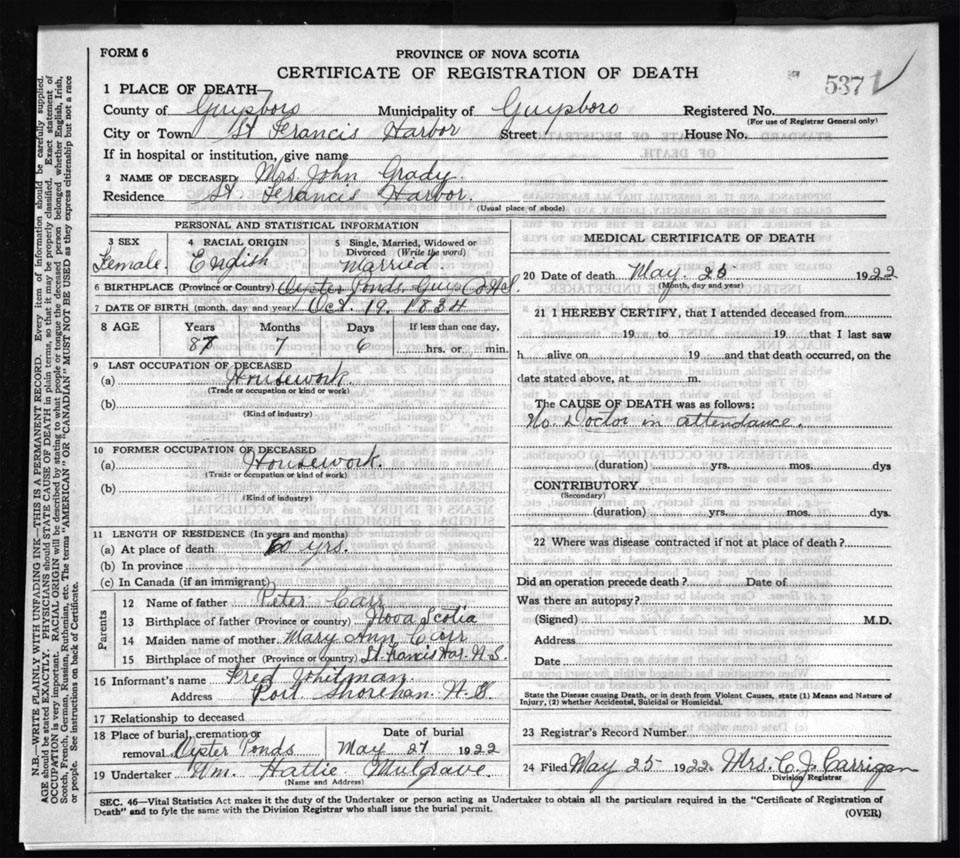 FORM 6
PROVINCE OF NOVA SCOTIA
CERTIFICATE OF REGISTRATION OF DEATH
537
1 PLACE OF DEATH—
County of Guysboro Municipality of Guysboro Registered No.
(For use of Registrar General only)
City or Town St Francis Harbor Street House No.
If in hospital or institution, give name
2 NAME OF DECEASED Mrs. John Grady.
Residence St Francis Harbor.
(Usual place of abode)
PERSONAL AND STATISTICAL INFORMATION
3 SEX 4 RACIAL ORIGIN 5 Single, Married, Widowed or Divorced (Write the word)
Female. English Married.
6 BIRTHPLACE (Province or Country) Oyster Ponds. Guys Co N.S.
7 DATE OF BIRTH (month, day and year) Oct. 19. 1834
8 AGE Years Months Days If less than one day,
87 7 6 hrs. or min.
9 LAST OCCUPATION OF DECEASED
(a) Housework.
(Trade or occupation or kind or work)
(b)
(Kind of industry)
10 FORMER OCCUPATION OF DECEASED
(a) Housework.
(Trade or occupation or kind of work)
(b)
(Kind of industry)
11 LENGTH OF RESIDENCE (In years and months)
(a) At place of death 60 yrs.
(b) In province
(c) In Canada (if an immigrant)
Parents
12 Name of father Peter Carr
13 Birthplace of father (Province or country) Nova Scotia
14 Maiden name of mother Mary Ann Corr
15 Birthplace of mother (Province or country) St. Francis Har. N.S.
16 Informant's name Fred Whitman.
Address Port Shorehan. N.S
17 Relationship to deceased
18 Place of burial, cremation or removal Date of burial
Oyster Ponds May 27 1922
19 Undertaker Wm. Hattie Mulgrave.
(Name and Address)
MEDICAL CERTIFICATE OF DEATH
20 Date of death May 25 1922
(Month, day and year)
21 I HEREBY CERTIFY, that I attended deceased from
19 to 19 that I last saw
h alive on 19 and that death occurred, on the
date stated above, at m.
The CAUSE OF DEATH was as follows:
No. Doctor in attendance.
(duration) yrs. mos. dys
CONTRIBUTORY
(Secondary)
(duration) yrs. mos. dys.
22 Where was disease contracted if not at place of death?
Did an operation precede death? Date of
Was there an autopsy?
(Signed) M.D.
Address
Date
State the Disease causing Death, or in death from Violent Causes, state (1) Means and Nature of
Injury, (2) whether Accidental, Suicidal or Homicidal.
23 Registrar's Record Number
24 Filed May 25 1922 Mrs. C. J. Carrigan
Division Registrar
SEC. 46—Vital Statistics Act makes it the duty of the Undertaker or person acting as Undertaker to obtain all the particulars required in the "Certificate of Registration of
Death" and to fyle the same with the Division Registrar who shall issue the burial permit.
(OVER)
N.B.—WRITE PLAINLY WITH UNFADING INK—THIS IS A PERMANENT RECORD. Every item of information should be carefully supplied.
AGE should be stated EXACTLY. PHYSICIANS should STATE CAUSE OF DEATH in plain terms, so that it may be properly classified. Exact statement of
OCCUPATION is very important. RACIAL ORIGIN will be described by stating to what people or tongue the deceased person belonged whether English, Irish,
Scotch, French, German, Russian, Ruthenian, etc. The terms "AMERICAN" or "CANADIAN" MUST NOT BE USED as they express citizenship but not a race
or people. See instructions on back of Certificate.